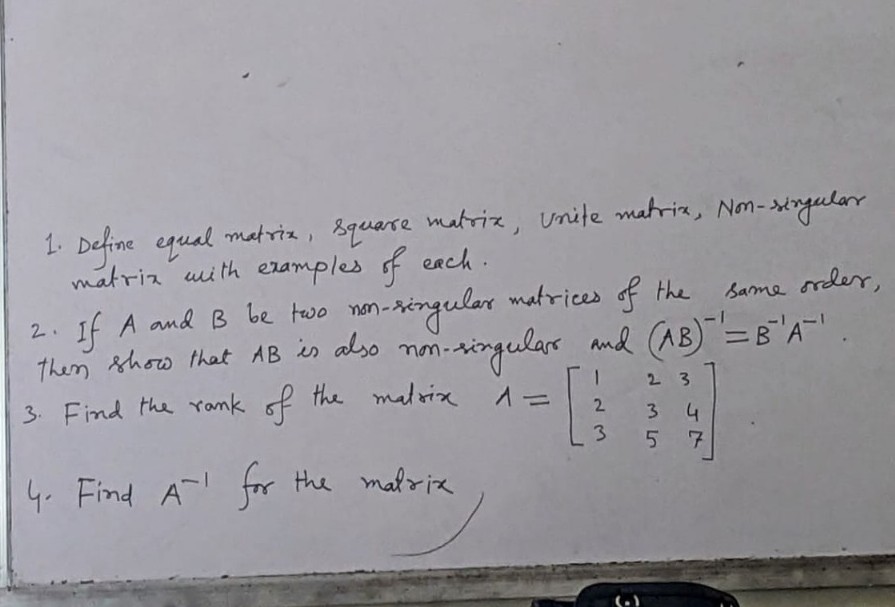 1. Define equal matrix, square matrix, Unite matrix, Non-singular
matrix with examples of each.
2. If A and B be two non-singular matrices of the same order,
then show that AB is also non-singular and (AB)⁻¹ = B⁻¹A⁻¹.
3. Find the rank of the matrix A = [1 2 3
2 3 4
3 5 7].
4. Find A⁻¹ for the matrix